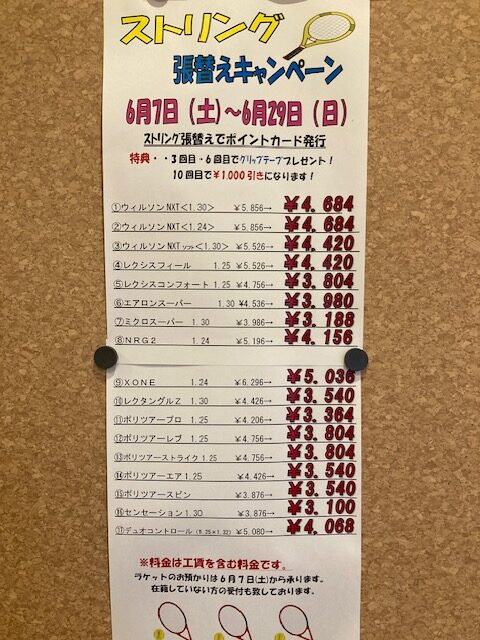 ストリング
張替えキャンペーン
6月7日（土）～6月29日（日）
ストリング張替えでポイントカード発行
特典・・3回目・6回目でグリップテーププレゼント！
10回目で￥1,000引きになります！
①ウィルソンNXT＜1.30＞ ￥5,856→ ￥4,684
②ウィルソンNXT＜1.24＞ ￥5,856→ ￥4,684
③ウィルソンNXTソフト＜1.30＞ ￥5,526→ ￥4,420
④レクシスフィール 1.25 ￥5,526→ ￥4,420
⑤レクシスコンフォート 1.25 ￥4,756→ ￥3,804
⑥エアロンスーパー 1.30 ¥4,536→ ￥3,980
⑦ミクロスーパー 1.30 ￥3,986→ ￥3,188
⑧NRG2 1.24 ￥5,196→ ￥4,156
⑨XONE 1.24 ￥6,296→ ￥5,036
⑩レクタングルZ 1.30 ￥4,426→ ￥3,540
⑪ポリツアープロ 1.25 ￥4,206→ ￥3,364
⑫ポリツアーレブ 1.25 ￥4,756→ ￥3,804
⑬ポリツアーストライク 1.25 ￥4,756→ ￥3,804
⑭ポリツアーエア 1.25 ￥4,426→ ￥3,540
⑮ポリツアースピン ￥3,876→ ￥3,540
⑯センセーション 1.30 ￥3,876→ ￥3,100
⑰デュオコントロール (5.25×1.32) ￥5,080→ ￥4,068
※料金は工賃を含む料金です。
ラケットのお預かりは6月7日(土)から承ります。
在籍していない方の受付も致しております。